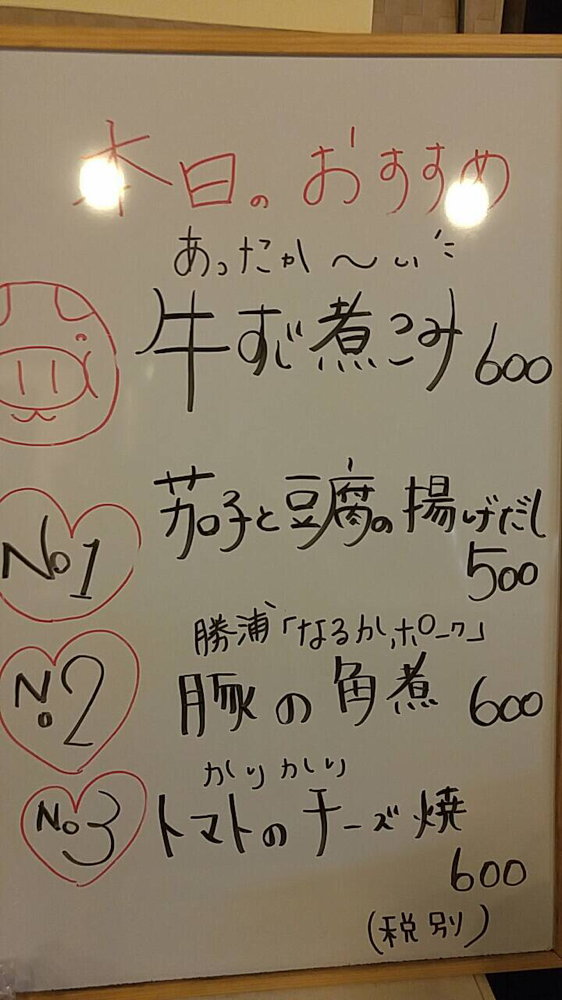 本日のおすすめ
あったか～い
牛すじ煮こみ 600
No1 茄子と豆腐の揚げだし
500
勝浦「なるかポーク」
No2 豚の角煮 600
かりかり
No3 トマトのチーズ焼
600
(税別)